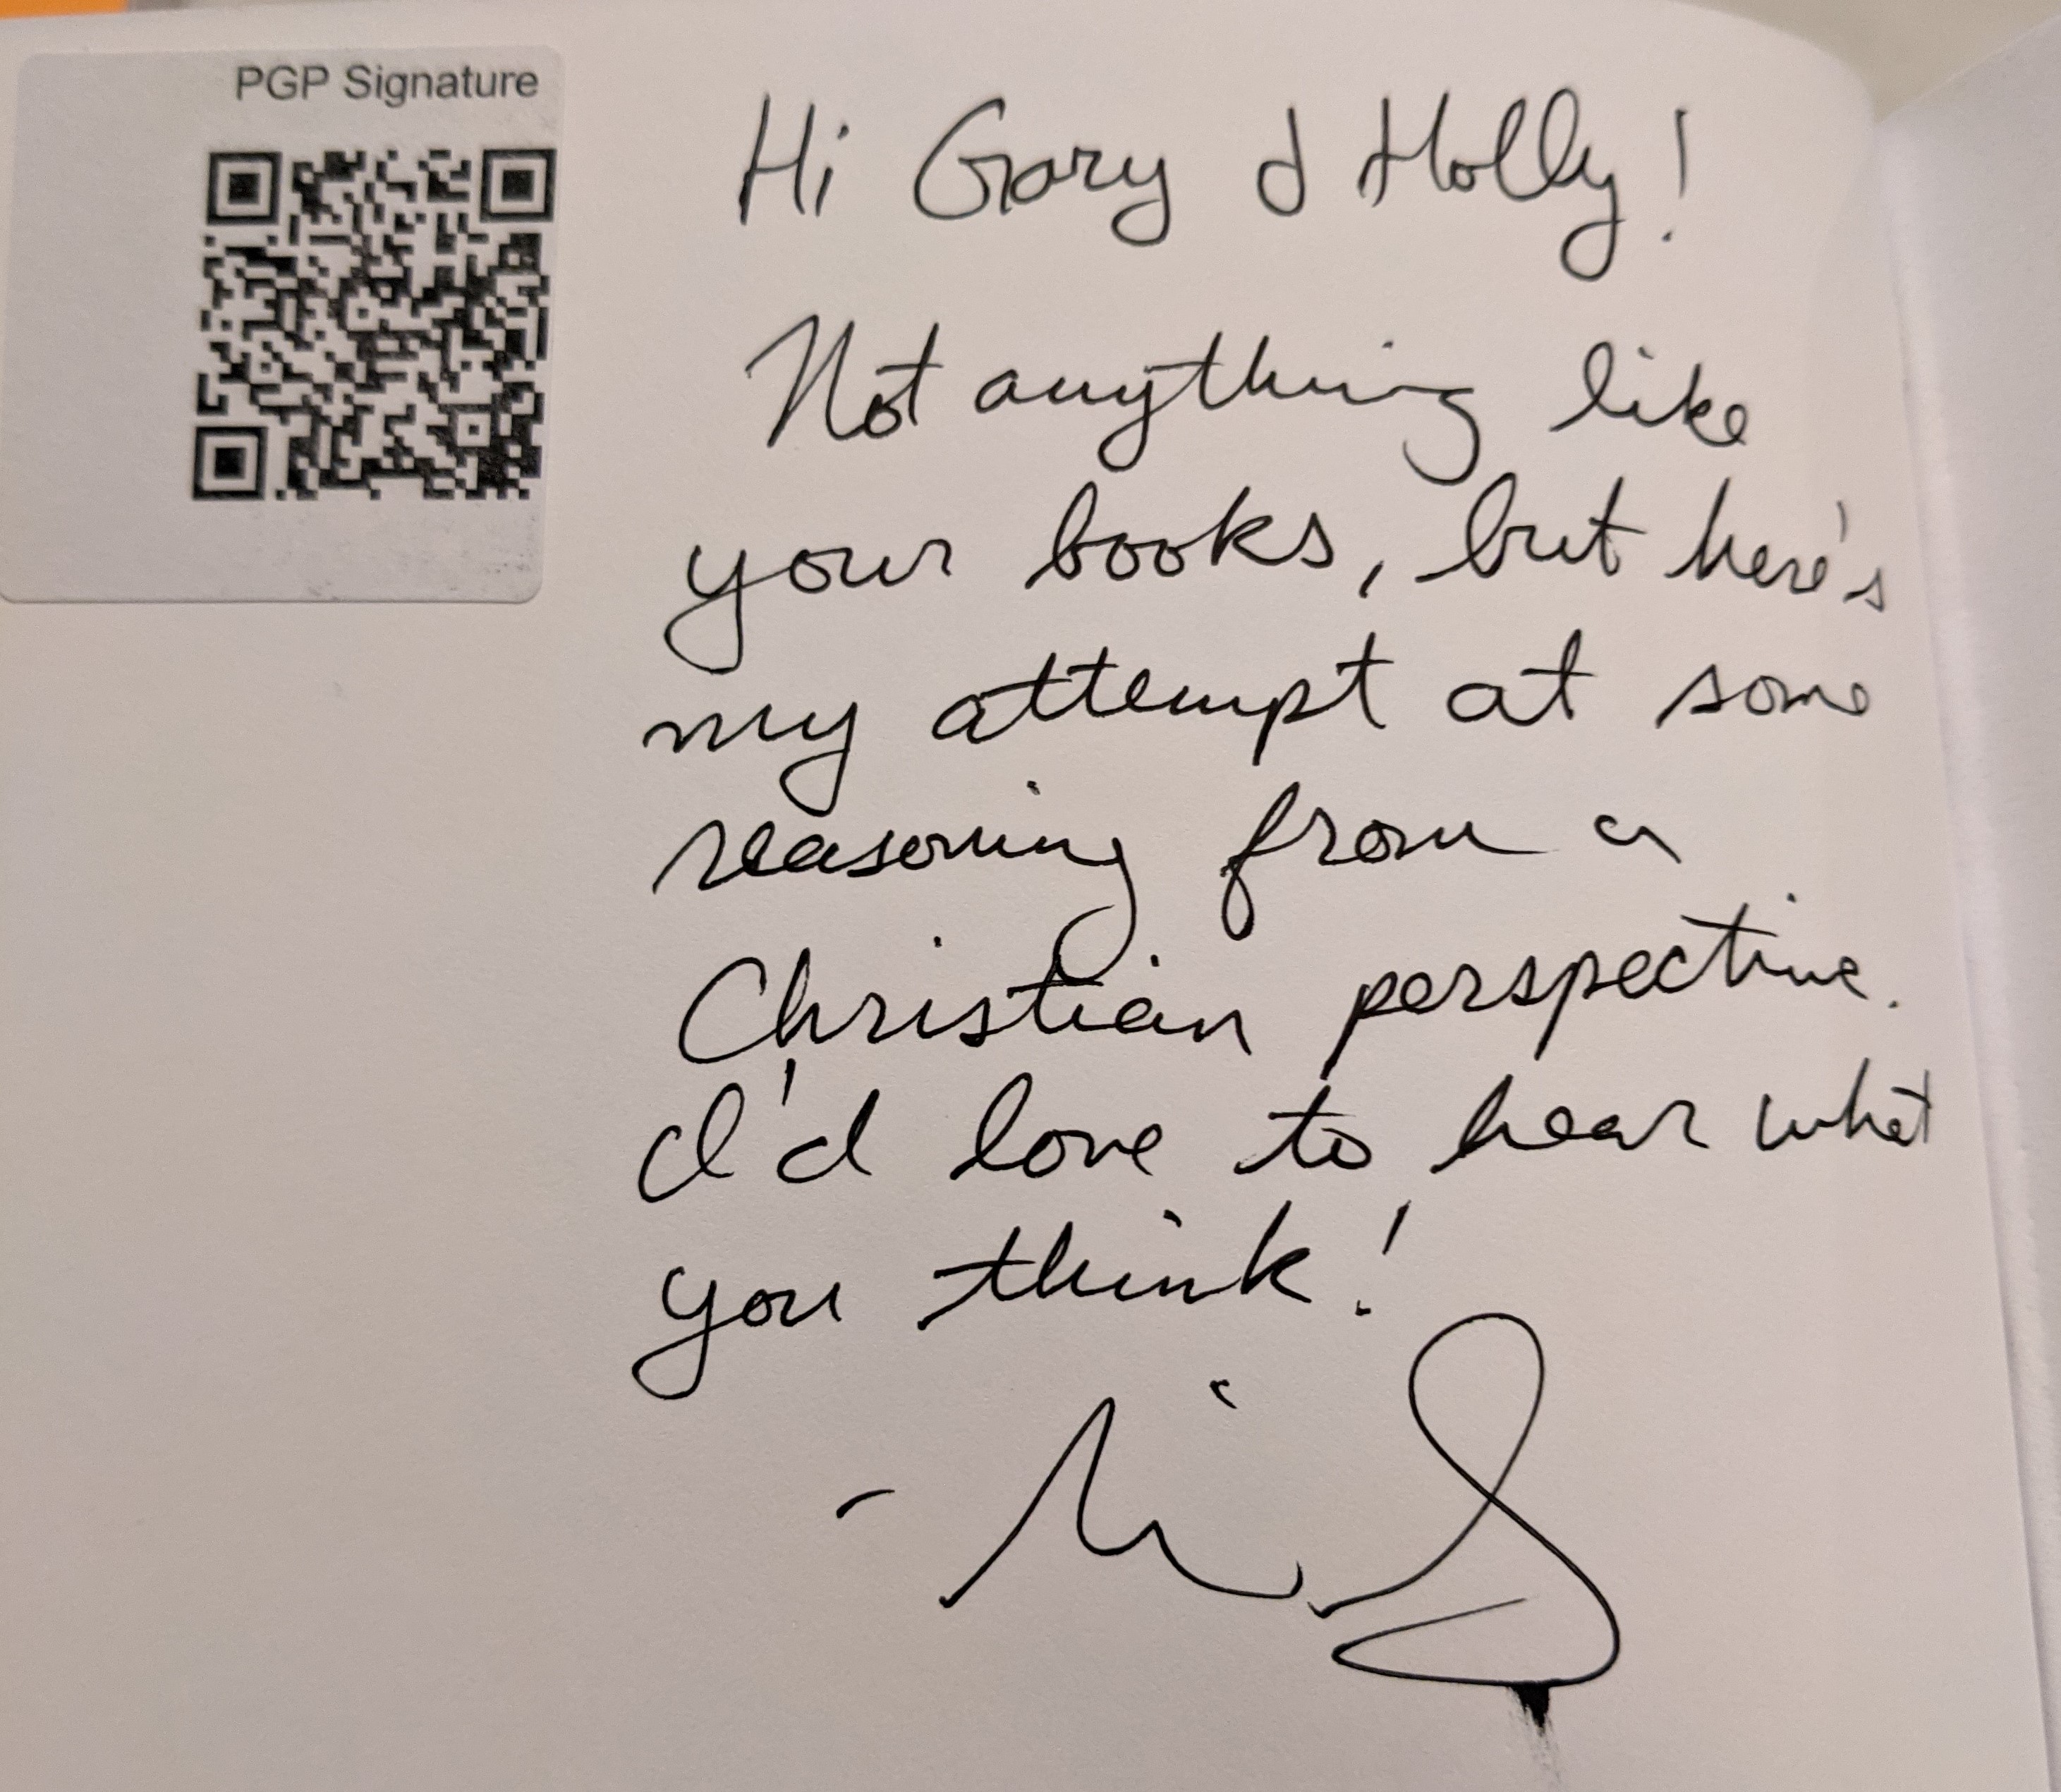 PGP Signature
Hi Gary & Holly!
Not anything like
your books, but here's
my attempt at some
reasoning from a
Christian perspective.
I'd love to hear what
you think!